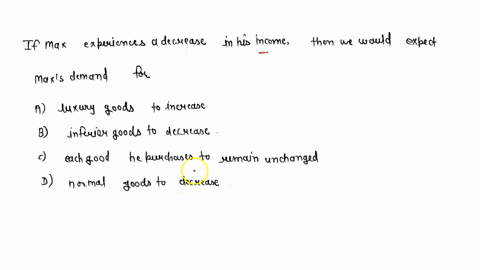 If Max experiences a decrease in his income, then we would expect
Max's demand for
A) luxury goods to increase.
B) inferior goods to decrease.
C) each good he purchases to remain unchanged
D) normal goods to decrease.